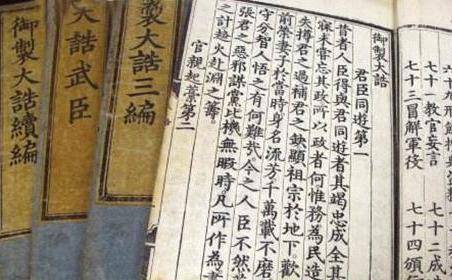 六十九刑餘
七十一教官妄言 七十二
七十三冒解軍役 七十四頒行
御製大誥
君臣同遊第一
昔者人臣得與君同遊者其竭忠成全其
寐未嘗忘其政所以政者何惟務為民造
失撙君之過補君之缺顯祖宗於地下歡
前榮妻子於當時身名流芳千萬載不磨
守分智人悟之有何難哉今之人臣不然
張君之惡邪謀黨比機無暇時凡所作為
之計趨火赴淵之籌
官親起藁第二
製大誥三編
大誥武臣
御製大誥續編